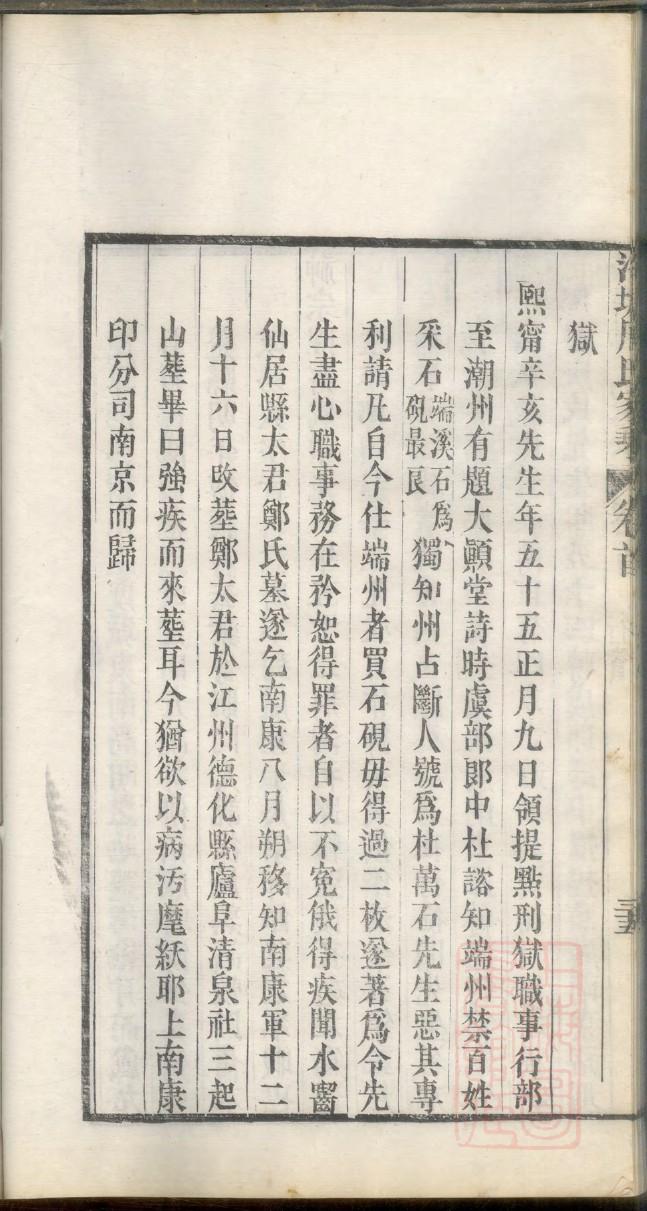 洛場周氏家乘 卷首
三五
獄
熙甯辛亥先生年五十五正月九日領提點刑獄職事行部
至潮州有題大顚堂詩時虞部郎中杜諮知端州禁百姓
采石端溪石爲硯最良獨知州占斷人號爲杜萬石先生惡其專
利請凡自今仕端州者買石硯毋得過二枚遂著爲令先
生盡心職事務在矜恕得罪者自以不寃俄得疾聞水齧
仙居縣太君鄭氏墓遂乞南康八月朔移知南康軍十二
月十六日改塟鄭太君於江州德化縣廬阜清泉社三起
山塟畢曰強疾而來塟耳今猶欲以病汚麾紱耶上南康
印分司南京而歸